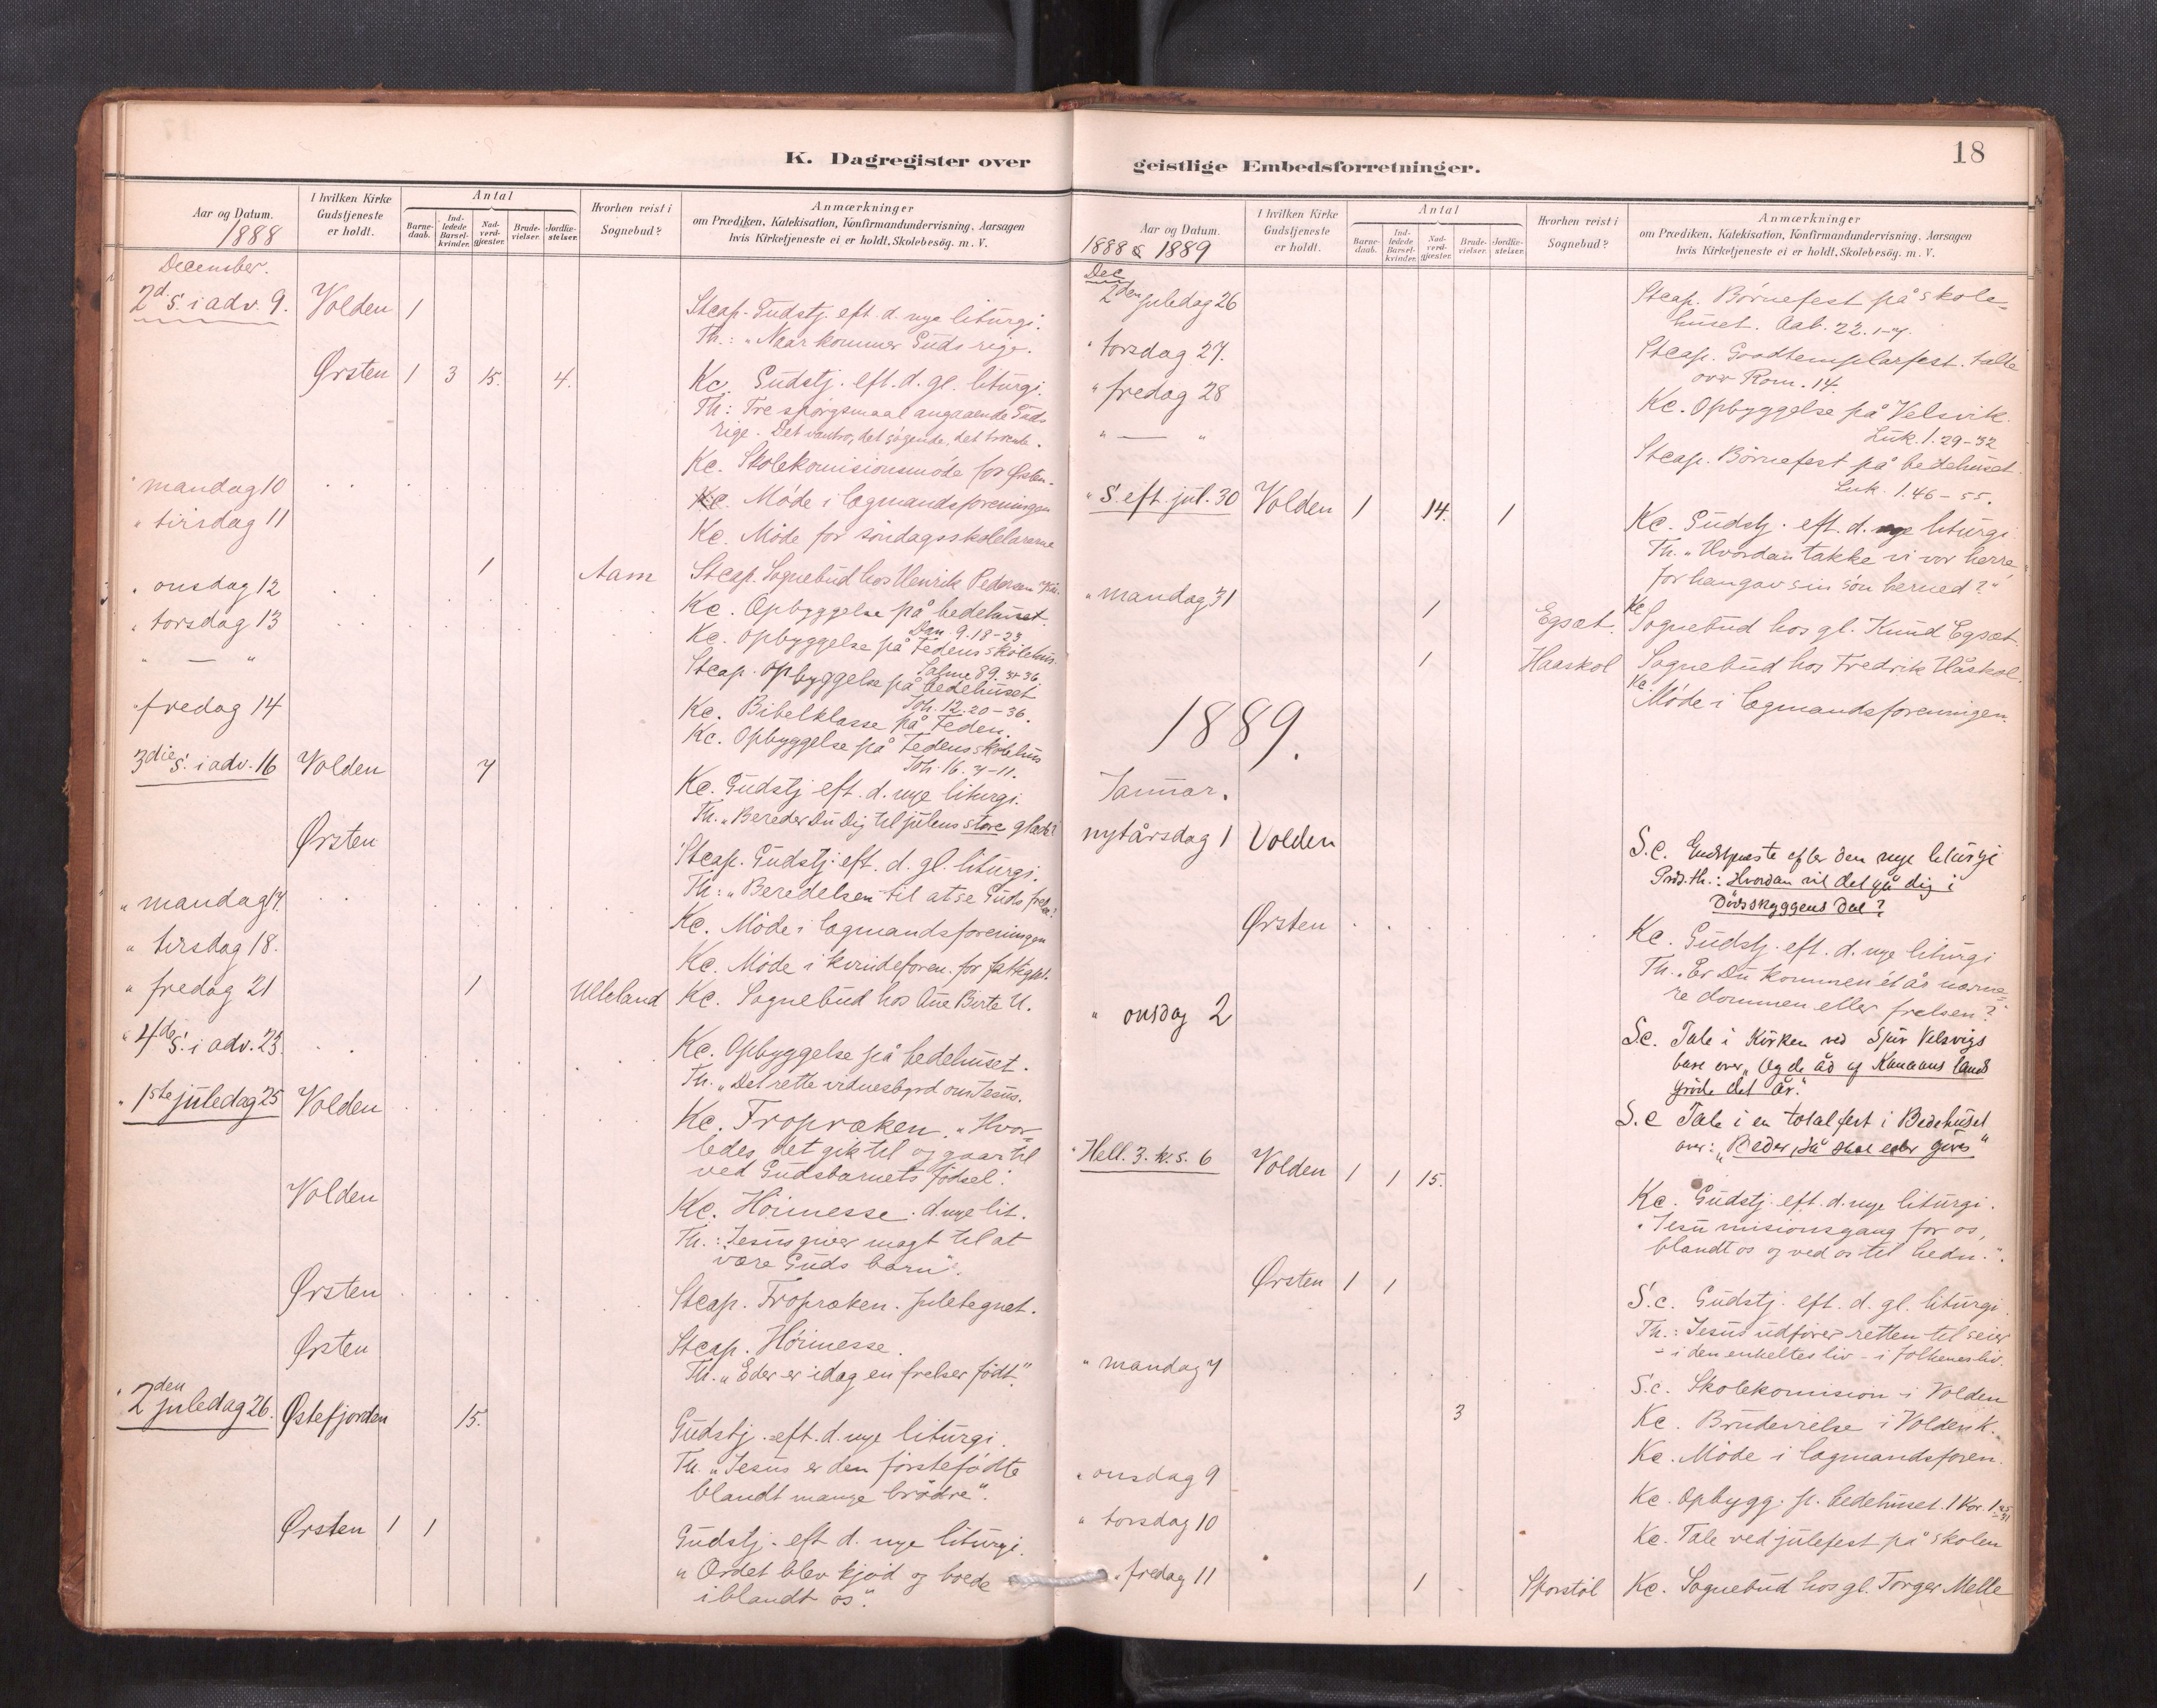 K. Dagregister over
Aar og Datum.
1888
I hvilken Kirke
Gudstjeneste
er holdt.
Antal
Barne-
daab.
Ind-
ledede
Barsel-
kvinder.
Nad-
verd-
gjæster.
Brude-
vielser.
Jordfæ-
stelser.
Hvorhen reist i
Sognebud?
Anmærkninger
om Prædiken, Katekisation, Konfirmandundervisning, Aarsagen
hvis Kirketjeneste ei er holdt, Skolebesøg. m. V.
December.
2d S. i adv. 9. Volden 1
Stcap. Gudstj. eft. d. nye liturgi.
Th.: "Naar kommer Guds rige.
Ørsten 1 3 15. 4. Kc. Gudstj. eft. d. gl. liturgi.
Th: Tre spørgsmaal angaaende Guds
rige. Det vantro, det søgende, det troende.
Kc. Skolekomisionsmøde for Ørsten.
" mandag 10 Kc. Møde i lægmandsforeningen
" tirsdag 11 Kc. Møde for søndagsskolelærerne
1 Aam Stcap. Sognebud hos Henrik Pedersen
" onsdag 12 Kc. Opbyggelse på bedehuset.
Dan. 9. 18-23.
" torsdag 13 Kc. opbyggelse på Fedens skolehus.
Salme 89.
" — " Stcap. opbyggelse på bedehuset
Joh. 12. 20-36.
" fredag 14 Kc. Bibelklasse på Feden.
Kc. Opbyggelse på Fedens skolehus
Joh. 16. 7-11.
3die S. i adv. 16 Volden 7
Kc. Gudstj. eft. d. nye liturgi.
Th. "Bereder Du Dig til julens store glæde?
Ørsten
Stcap. Gudstj. eft. d. gl. liturgi.
Th: "Beredelsen til at se Guds frelse?
" mandag 17. Kc. Møde i lægmandsforeningen
" tirsdag 18. Kc. Møde i kvindeforen. for fattige.
" fredag 21 1 Ulleland Kc. Sognebud hos Ane Birte U.
" 4de S. i adv. 23. Kc. Opbyggelse på bedehuset.
Th. "Det rette vidnesbyrd om Jesus.
" 1ste juledag 25 Volden
Kc. Fropræken. "Hvor-
ledes det gik til og gaar til
ved Gudsbarnets fødsel.
Volden
Kc. Høimesse. d. nye lit.
Th.: Jesus giver magt til at
være Guds barn".
Ørsten Stcap. Fropræken. Juletegnet.
Ørsten Stcap. Høimesse.
Th. "Eder er idag en frelser født."
2den juledag 26. Østefjorden 15.
Gudstj. eft. d. nye liturgi.
Th. "Jesus er den førstefødte
blandt mange brødre".
Ørsten 1 1
Gudstj. eft d. nye liturgi.
"Ordet blev kjød og boede
iblandt os".
18
geistlige Embedsforretninger.
Aar og Datum.
1888 & 1889
I hvilken Kirke
Gudstjeneste
er holdt.
Antal
Barne-
daab.
Ind-
ledede
Barsel-
kvinder.
Nad-
verd-
gjæster.
Brude-
vielser.
Jordfæ-
stelser.
Hvorhen reist i
Sognebud?
Anmærkninger
om Prædiken, Katekisation, Konfirmandundervisning, Aarsagen
hvis Kirketjeneste ei er holdt, Skolebesøg. m. V.
Dec
2den juledag 26 Stcap. Børnefest på skole-
huset. Aab. 22. 1-7.
" torsdag 27. Stcap. Goodtemplarfest. talte
over Rom. 14.
" fredag 28 Kc. Opbyggelse på Velsvik.
Luk. 1. 29-32
" — " Stcap. Børnefest på bedehuset.
Luk. 1. 46-55.
" S. eft. jul. 30 Volden 1 14. 1
Kc. Gudstj. eft. d. nye liturgi
Th. "Hvordan takke vi vor herre
for han gav sin søn herned?"
" mandag 31 1 Egset. Kc Sognebud hos gl. Knud Egset.
1 Haaskol Sognebud hos Fredrik Håskol.
Kc. Møde i lægmandsforeningen.
1889.
Januar.
nytårsdag 1 Volden
S.c. Gudstjeneste efter den nye liturgi
Præd. th.: Hvordan vil det gå dig i
Dødsskyggens dal?
Ørsten
Kc. Gudstj. eft. d. nye liturgi
Th. "Er Du kommen ét år nærme-
re dommen eller frelsen?"
" onsdag 2
S.c. Tale i Kirken ved Sjur Velsvigs
båre over "Og de åd af Kanaans lands
grøde det år."
S.c Tale i en totalfest i Bedehuset
over: "Beder, så skal eder gives"
" Hell. 3. k. s. 6 Volden 1 1 15.
Kc. Gudstj. eft. d. nye liturgi.
"Jesu misionsgang for os,
blandt os og ved os til hedn.".
Ørsten 1 1
S.c. Gudstj. eft. d. gl. liturgi.
Th.: Jesus udfører retten til seier
- i den enkeltes liv - i folkenes liv.
" mandag 7 S.c. Skolekomision i Volden
3 Kc. Brudevielse i Volden k.
Kc. Møde i lægmandsforen.
" onsdag 9 Kc. Opbygg. p. bedehuset. 1 Kor. 1
" torsdag 10 Kc. Tale ved julefest på skolen
" fredag 11 1 Storstøl Kc. Sognebud hos gl. Torger Melle